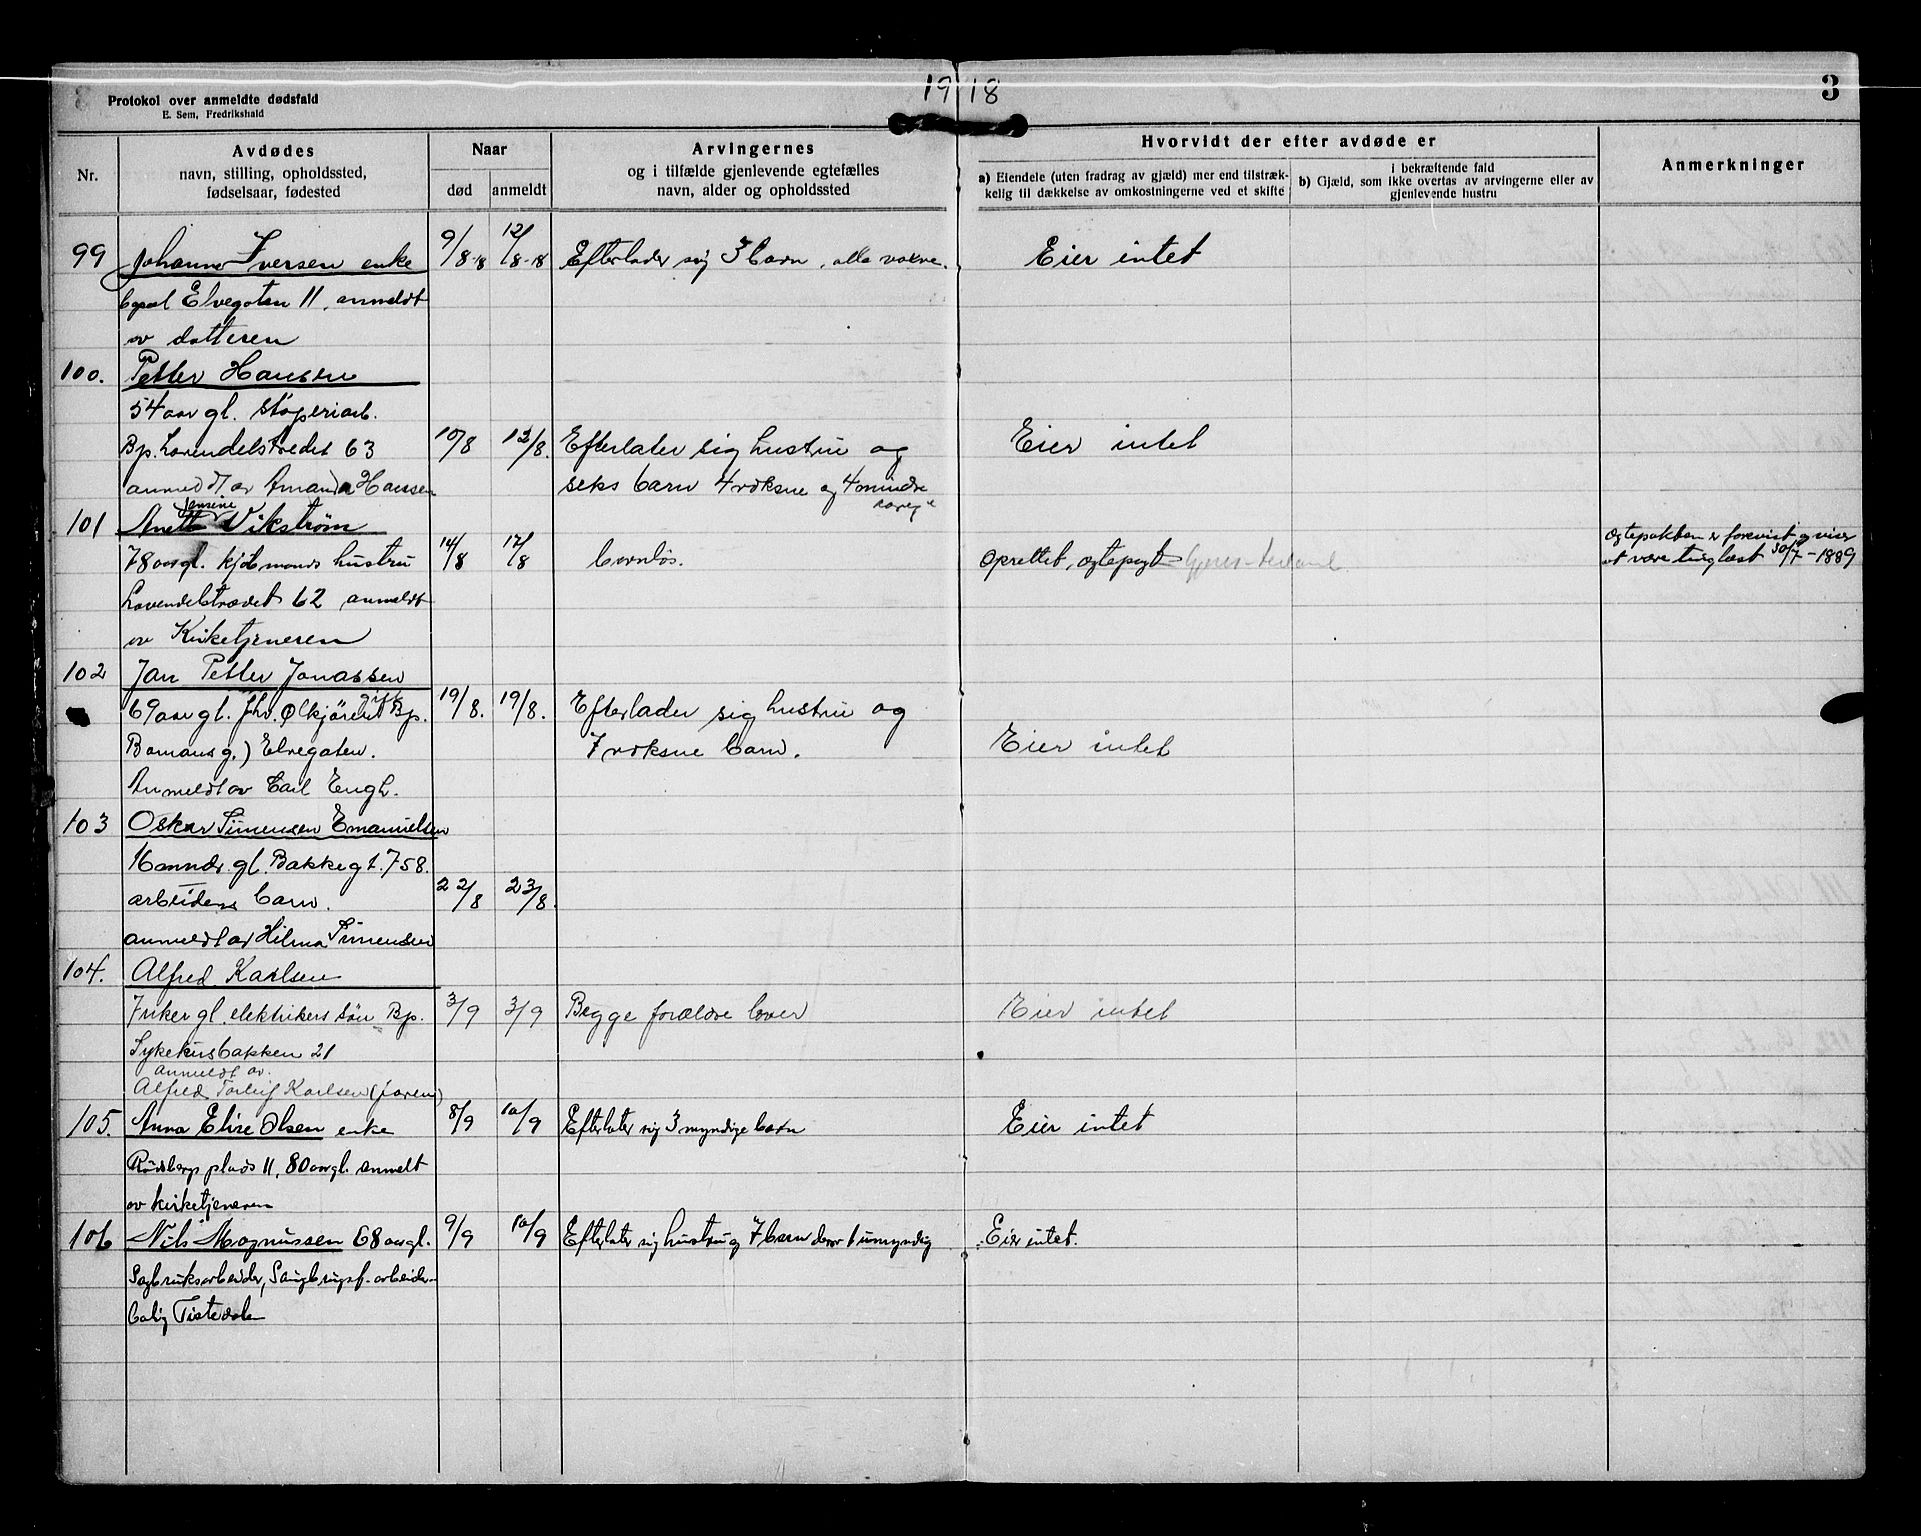 1918
3
Protokol over anmeldte dødsfald
E. Sem, Fredrikshald
Nr.
Avdødes
navn, stilling, opholdssted,
fødselsaar, fødested
Naar
død
anmeldt
Arvingernes
og i tilfælde gjenlevende egtefælles
navn, alder og opholdssted
Hvorvidt der efter avdøde er
a) Eiendele (uten fradrag av gjæld) mer end tilstræk-
kelig til dækkelse av omkostningerne ved et skifte
i bekræftende fald
b) Gjæld, som ikke overtas av arvingerne eller av
gjenlevende hustru
Anmerkninger
99 Johanne Iversen enke 9/8-18 12/8-18 Efterlader sig 3 barn, alle voksne. Eier intet
bopæl Elvegaten 11, anmeldt
av datteren
100. Petter Hansen
54 aar gl. støperiarb.
Bp. Lavendelstredet 63 10/8 12/8. Efterlater sig hustru og Eier intet
anmeldt av Amanda Hansen seks barn 4 voksne og 4 mindre
101 Anette Jensine Vikström
78 aar gl. kjøbmands hustru 14/8 17/8 barnløs. oprettet, egtepagt
Egtepakten er forevist og viser
at være tinglæst 30/7-1889
Lavendelstrædet 62 anmeldt
av Kirketjeneren
102 Jan Petter Jonassen
69 aar gl. fhv. Ølkjører gift Bp. 19/8. 19/8. Efterlader sig hustru og
Bomansg.) Elvegaten. 7 voksne barn. Eier intet
Anmeldt av Carl Engh.
103 Oskar Simensen Emanuelsen
16 mndr. gl. Bakkegt. 758.
arbeiders barn. 22/8 23/8.
anmeldt av Hilma Simensen
104. Alfred Karlsen
7 uker gl. elektrikers søn Bp. 3/9 3/9 Begge forældre lever Eier intet
Sykehusbakken 21
anmeldt av.
Alfred Torleif Karlsen (faren)
105. Anna Elise Olsen enke 8/9 10/9 Efterlater sig 3 myndige barn Eier intet
Rødsbergs plads 11, 80 aar gl. anmelt
av kirketjeneren
106 Nils Magnussen 68 aar gl. 9/9 10/9 Efterlater sig hustru og 7 barn derav 1 umyndig Eier intet.
Sagbruksarbeider, Saugbrugsf. arbeider
bolig Tistedalen